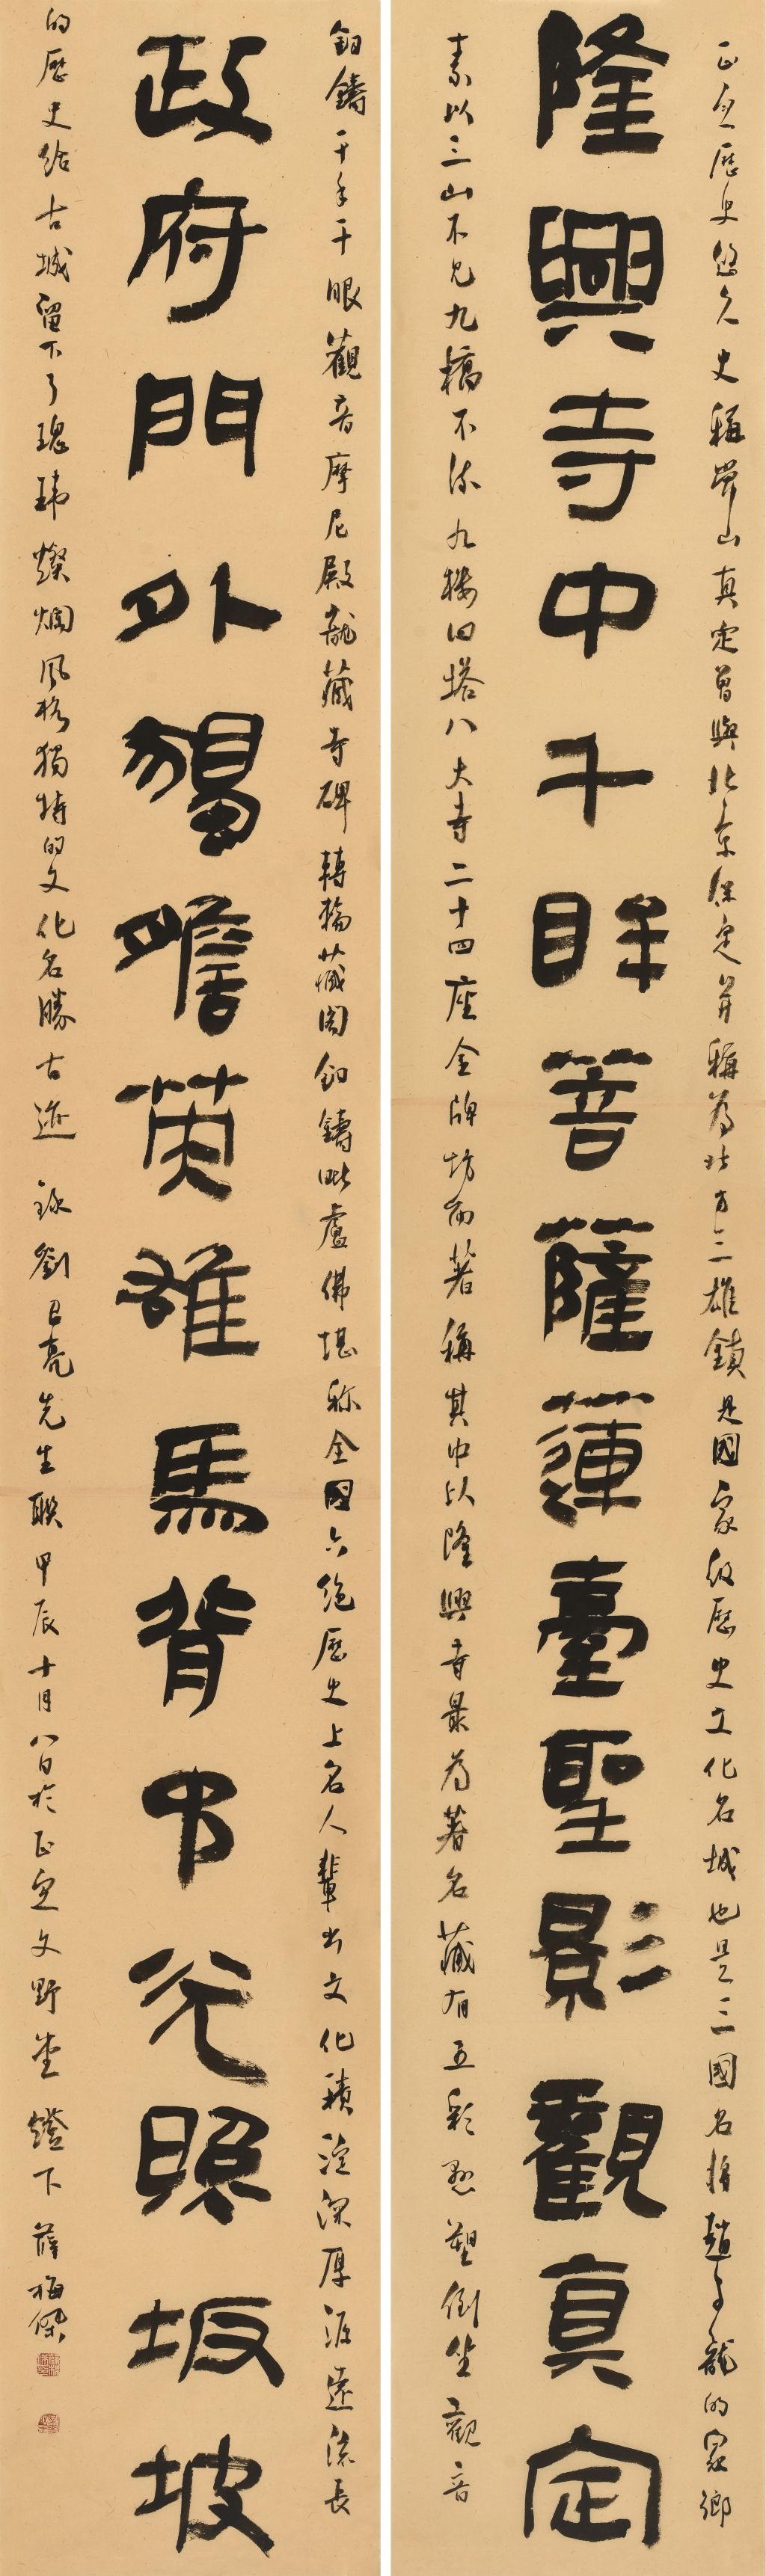 正定歷史悠久史稱常山真定曾與北京保定并稱為北方三雄鎮是國家級歷史文化名城也是三國名將趙子龍的家鄉
隆興寺中千眸菩薩蓮臺聖影觀真定
素以三山不見九橋不流九樓四塔八大寺二十四座金牌坊而著稱其中以隆興寺最為著名藏有五彩懸塑倒坐觀音
銅鑄千手千眼觀音摩尼殿龍藏寺碑轉輪藏閣銅鑄毗盧佛堪称全國六絕歷史上名人輩出文化積淀深厚源遠流長
政府門外賜瞻英雄馬背弔光照坂坡
的歷史給古城留下了瑰瑋燦爛風格獨特的文化名勝古迹 錄劉巳亮先生聯甲辰十月八日於正定文野堂燈下薛梅傑